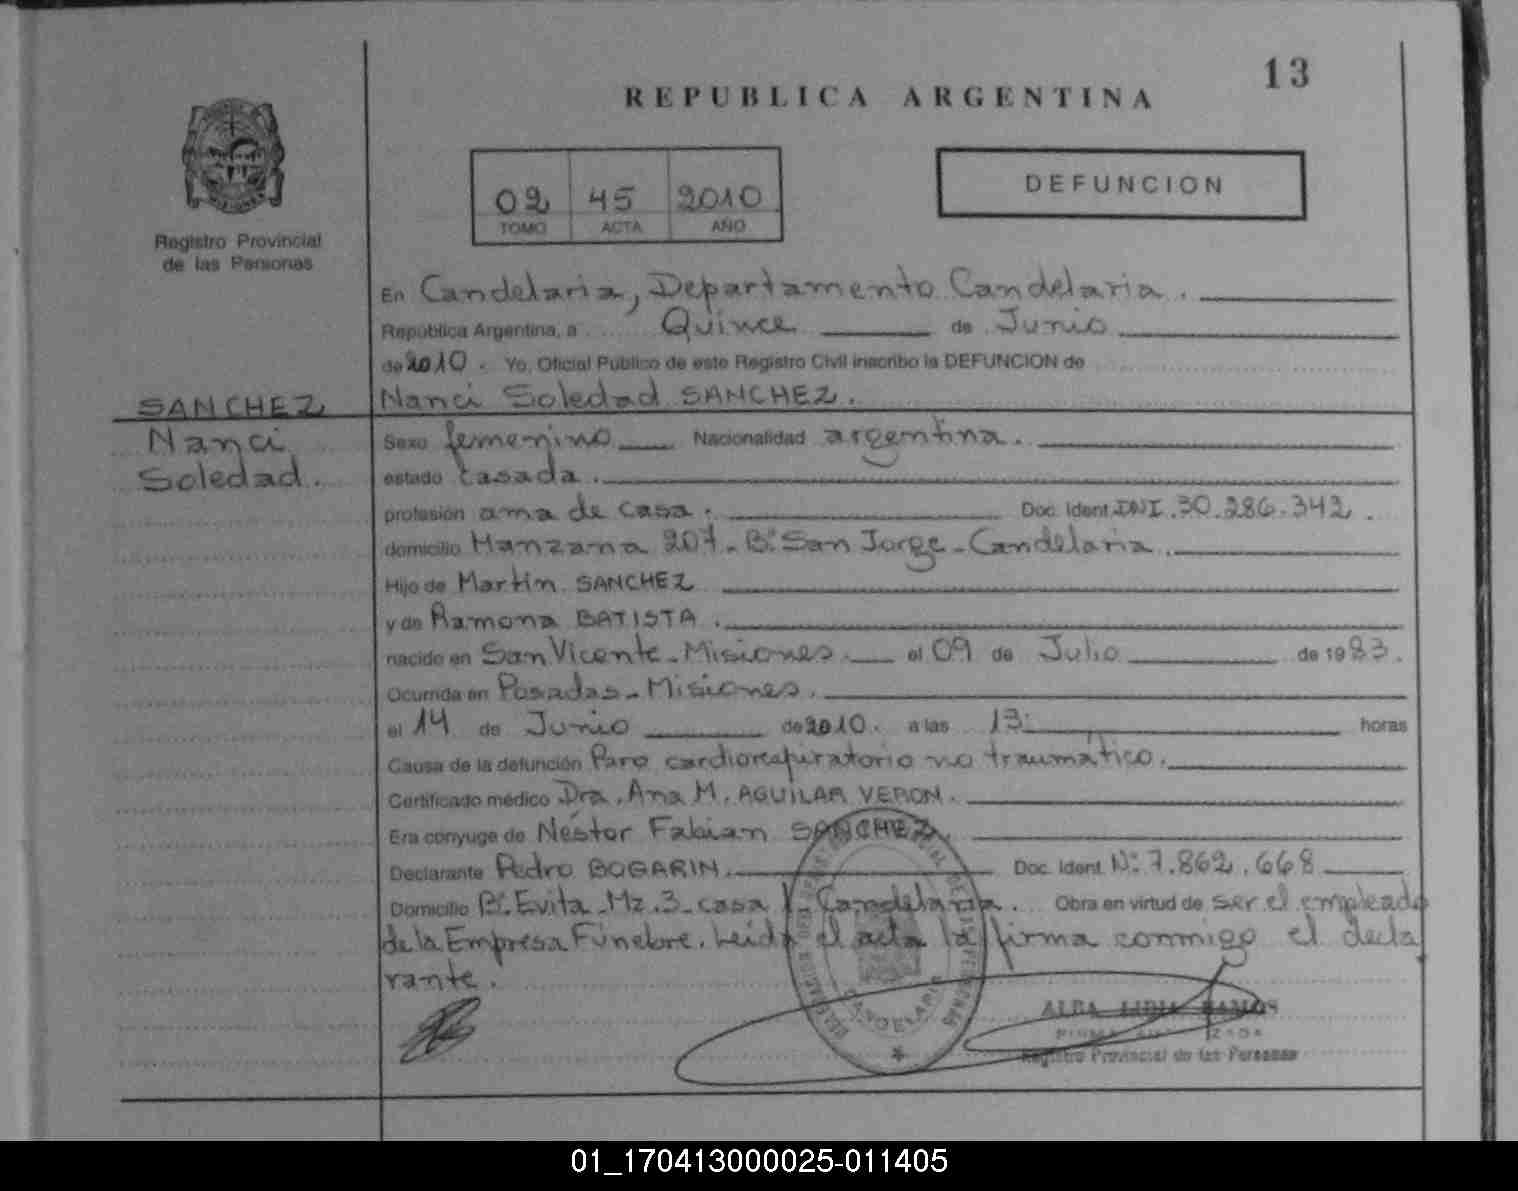 13
REPUBLICA ARGENTINA
02 45 2010
TOMO ACTA AÑO
DEFUNCION
Registro Provincial
de las Personas
En Candelaria, Departamento Candelaria.
República Argentina, a Quince de Junio
de 2010. Yo, Oficial Público de este Registro Civil inscribo la DEFUNCION de
SANCHEZ
Nanci
Soledad.
Nanci Soledad SANCHEZ.
Sexo femenino Nacionalidad argentina.
estado casada.
profesión ama de casa. Doc. Ident. DNI. 30.286.342.
domicilio Manzana 207- B° San Jorge- Candelaria.
Hijo de Martín SANCHEZ
y de Ramona BATISTA.
nacido en San Vicente- Misiones. el 09 de Julio de 1983.
Ocurrida en Posadas- Misiones.
el 14 de Junio de 2010. a las 13: horas
Causa de la defunción Paro cardiorespiratorio no traumático.
Certificado médico Dra. Ana M. AGUILAR VERON.
Era conyuge de Néstor Fabian SANCHEZ.
Declarante Pedro BOGARIN. Doc. Ident. N°: 7.862.668
Domicilio B° Evita- Mz. 3- casa Candelaria. Obra en virtud de ser el empleado
de la Empresa Fúnebre. Leída el acta la firma conmigo el decla
rante.
ALBA LIDIA RAMOS
FIRMA AUTORIZADA
Registro Provincial de las Personas
CANDELARIA
01_170413000025-011405